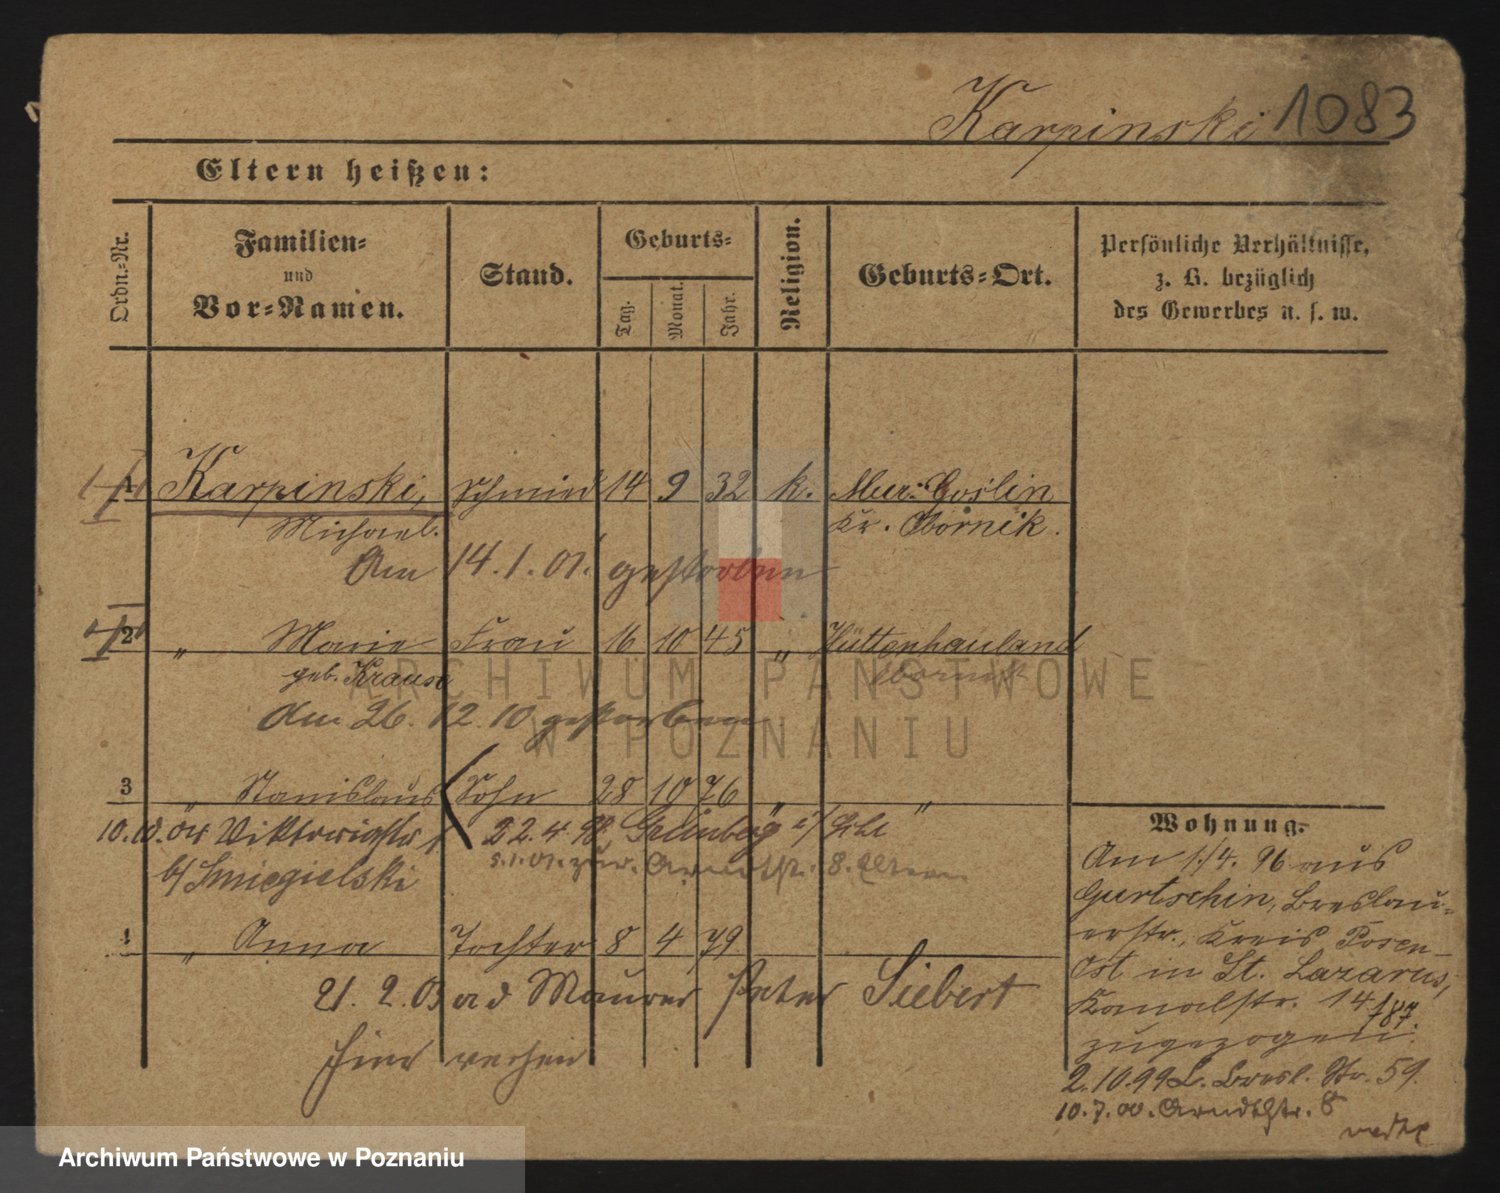 Karpinski 1083
Eltern heißen:
Ordn.-Nr.
Familien- und Vor-Namen.
Stand.
Geburts-
Tag. Monat. Jahr.
Religion.
Geburts-Ort.
Persönliche Verhältnisse,
z. B. bezüglich
des Gewerbes u. s. w.
1 Karpinski, Schmied 14 9 32 k. Mur: Goslin
Michael. Kr. Obornik.
Am 14.1.01. gestorben
2 " Marie Frau 16 10 45 " Hüttenhauland
geb. Krause Obornik
Am 26.12.10 gestorben
3 " Stanislaus Sohn 28 10 76 " "
10.10.04 Viktoriastr
22.4.98. Grünberg i/ Schl
b/ Smiegielski
5.1.01. zur. Arndtstr. 8. Eltern
4 " Anna Tochter 8 4 79
21.2.03 ad Maurer Peter Siebert
hier
Wohnung.
Am 1./4. 96 aus
Gurtschin, Breslau-
erstr., Kreis Posen-
Ost in St. Lazarus,
Kanalstr. 14/187.
zugezogen.
2.10.99 L. Bresl. Str. 59.
10.7.00. Arndtstr. 8
ARCHIWUM PAŃSTWOWE
W POZNANIU
Archiwum Państwowe w Poznaniu